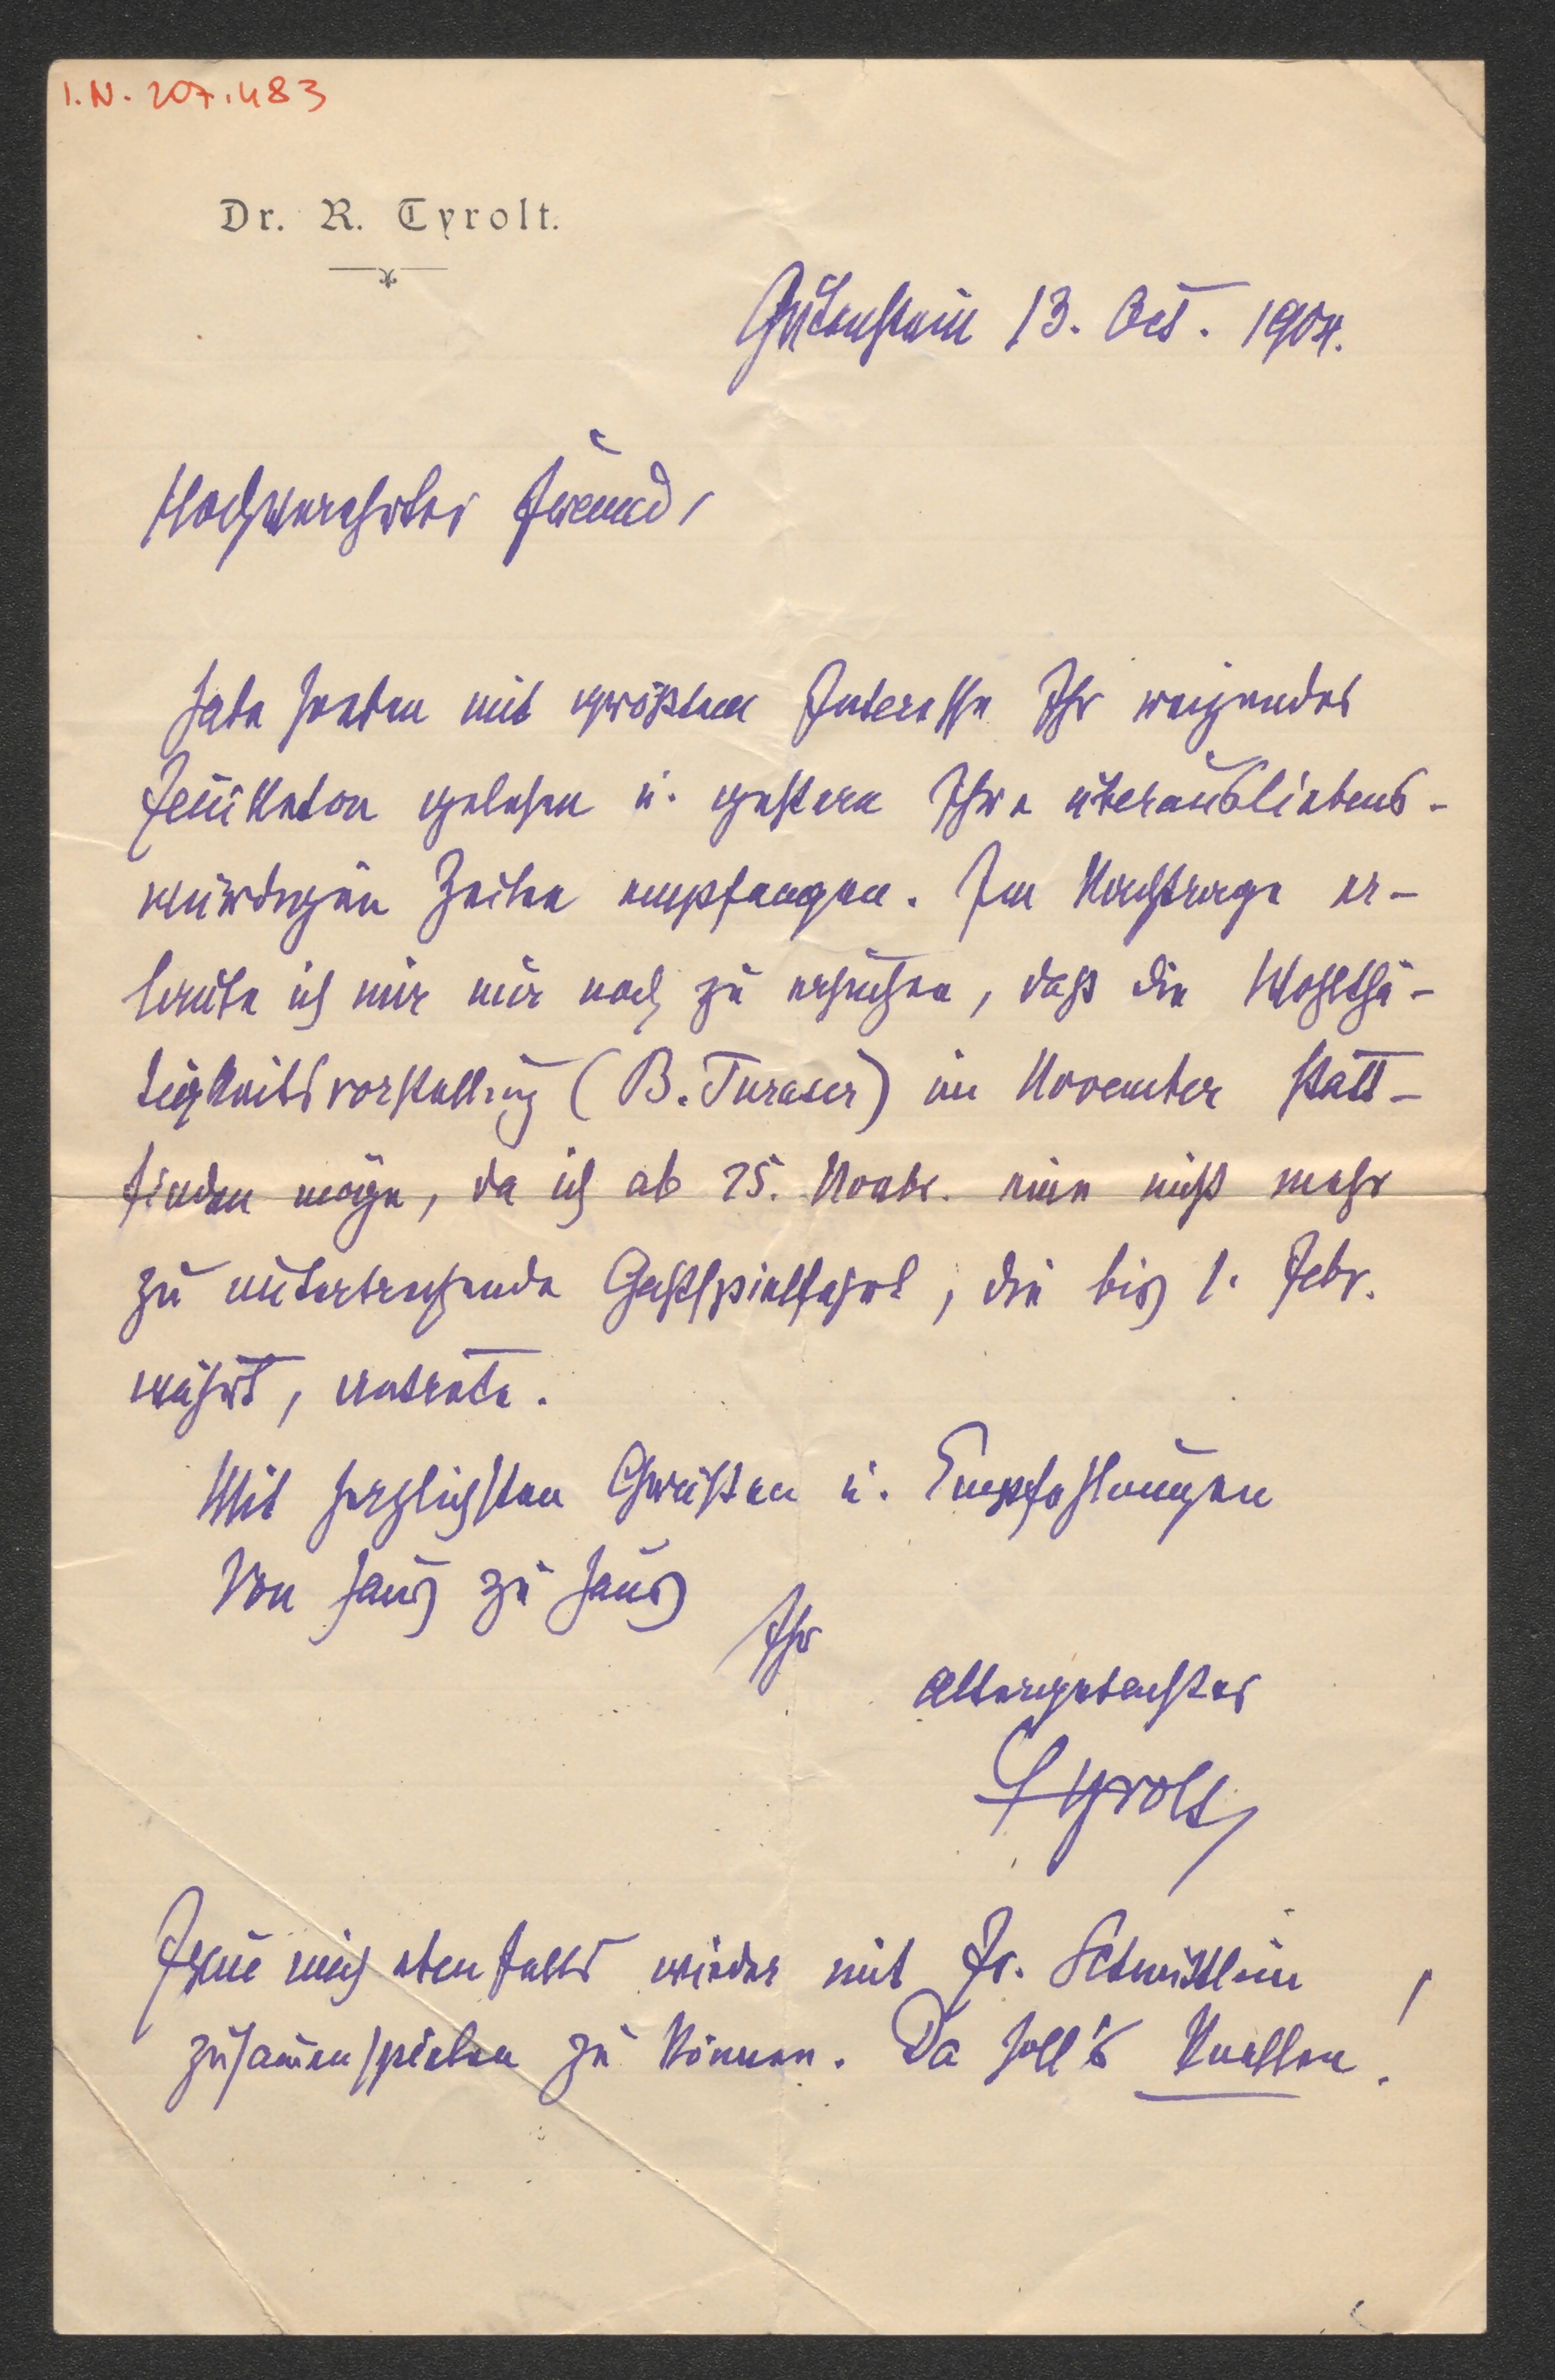 I.N. 207.483
Dr. R. Tyrolt.
Gutenstein 13. Oct. 1904.
Hochverehrter Freund,
habe soeben mit größtem Interesse Ihr reizendes
Feuilleton gelesen u. gestern Ihre überausliebens-
würdigen Zeilen empfangen. Im Nachtrage er-
laube ich mir nur noch zu ersuchen, daß die Wohlthä-
tigkeitsvorstellung (B. Turaser) im November statt-
finden möge, da ich ab 25. Novbr. eine nicht mehr
zu unterbrechende Gastspielfahrt, die bis 1. Febr.
währt, antrete.
Mit herzlichsten Grüßen u. Empfehlungen
Von Haus zu Haus
Ihr
altergebenster
Tyrolt
Freue mich ebenfalls wieder mit Fr. Schmittlein
zusammenspielen zu können. Da soll's knallen!